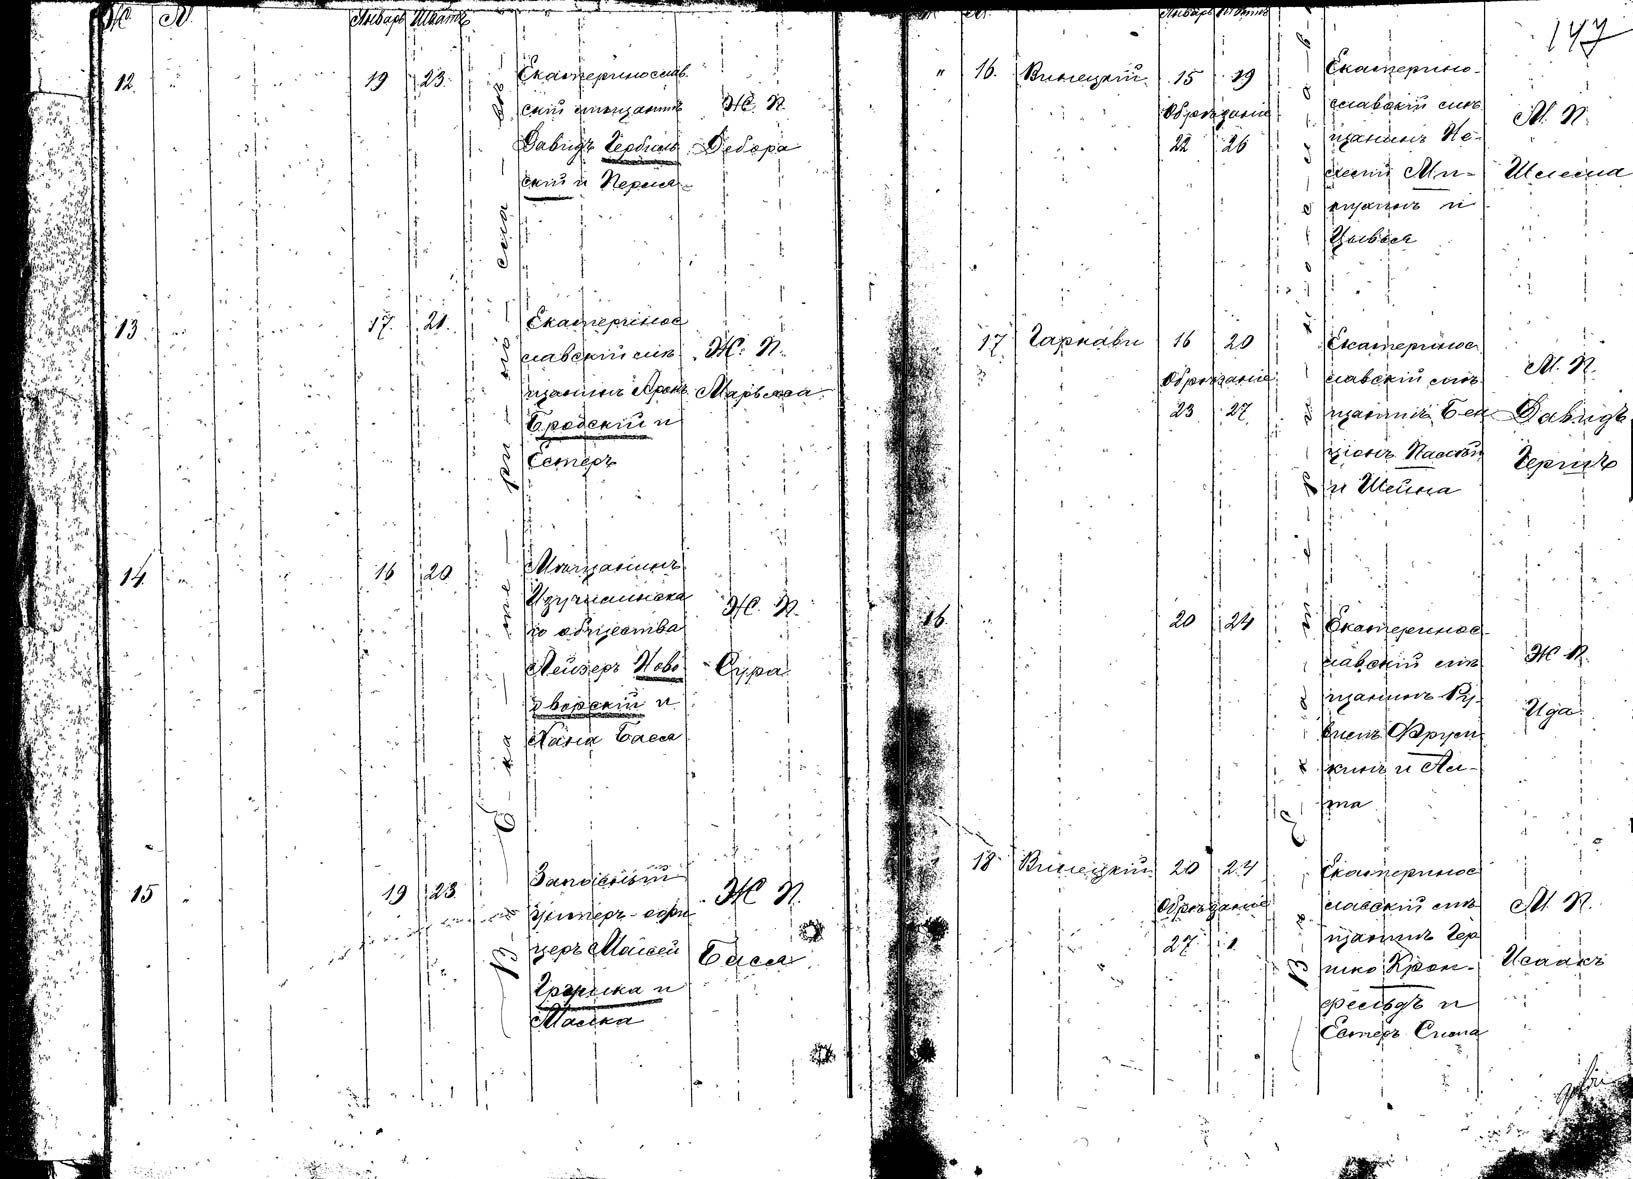 Ж. М. Январь Шватъ
12 19 23
Екатеринослав
скій мѣщанинъ
Давидъ Гербиль
скій и Перля
Ж. П.
Дебора
13 17 21
Екатеринос
лавскій мѣ
щанинъ Аронъ
Бродскій и
Естеръ
Ж. П.
Марьяса
14 16 20
Мѣщанинъ
го общества
Лейзеръ Ново
дворскій и
Хана Бася
Ж. П.
Сура
15 19 23
Запасный
унтеръ-офи
церъ Моисей
и
Малка
Ж. П.
Бася
В г. Екатеринославѣ
147
М. Январь Шватъ
" 16. Винецкій 15 19
Обрѣзаніе
22 26
Екатерино-
славскій мѣ
щанинъ Не-
и
Цывья
М. П.
Шлема
17 Гаркави 16 20
Обрѣзаніе
23 27
Екатеринос
лавскій мѣ
щанинъ Бен
ціонъ
и Шейна
М. П.
Давидъ
Гершъ
16 20 24
Екатеринос
лавскій мѣ
щанинъ Ру-
вимъ Фрум
кинъ и Ал-
та
Ж. П.
Ида
18 Винецкій 20 24
Обрѣзаніе
27 1
Екатеринос
лавскій мѣ
щанинъ Гер
шко Крон-
фельдъ и
Естеръ
М. П.
Исаакъ
В г. Екатеринославѣ